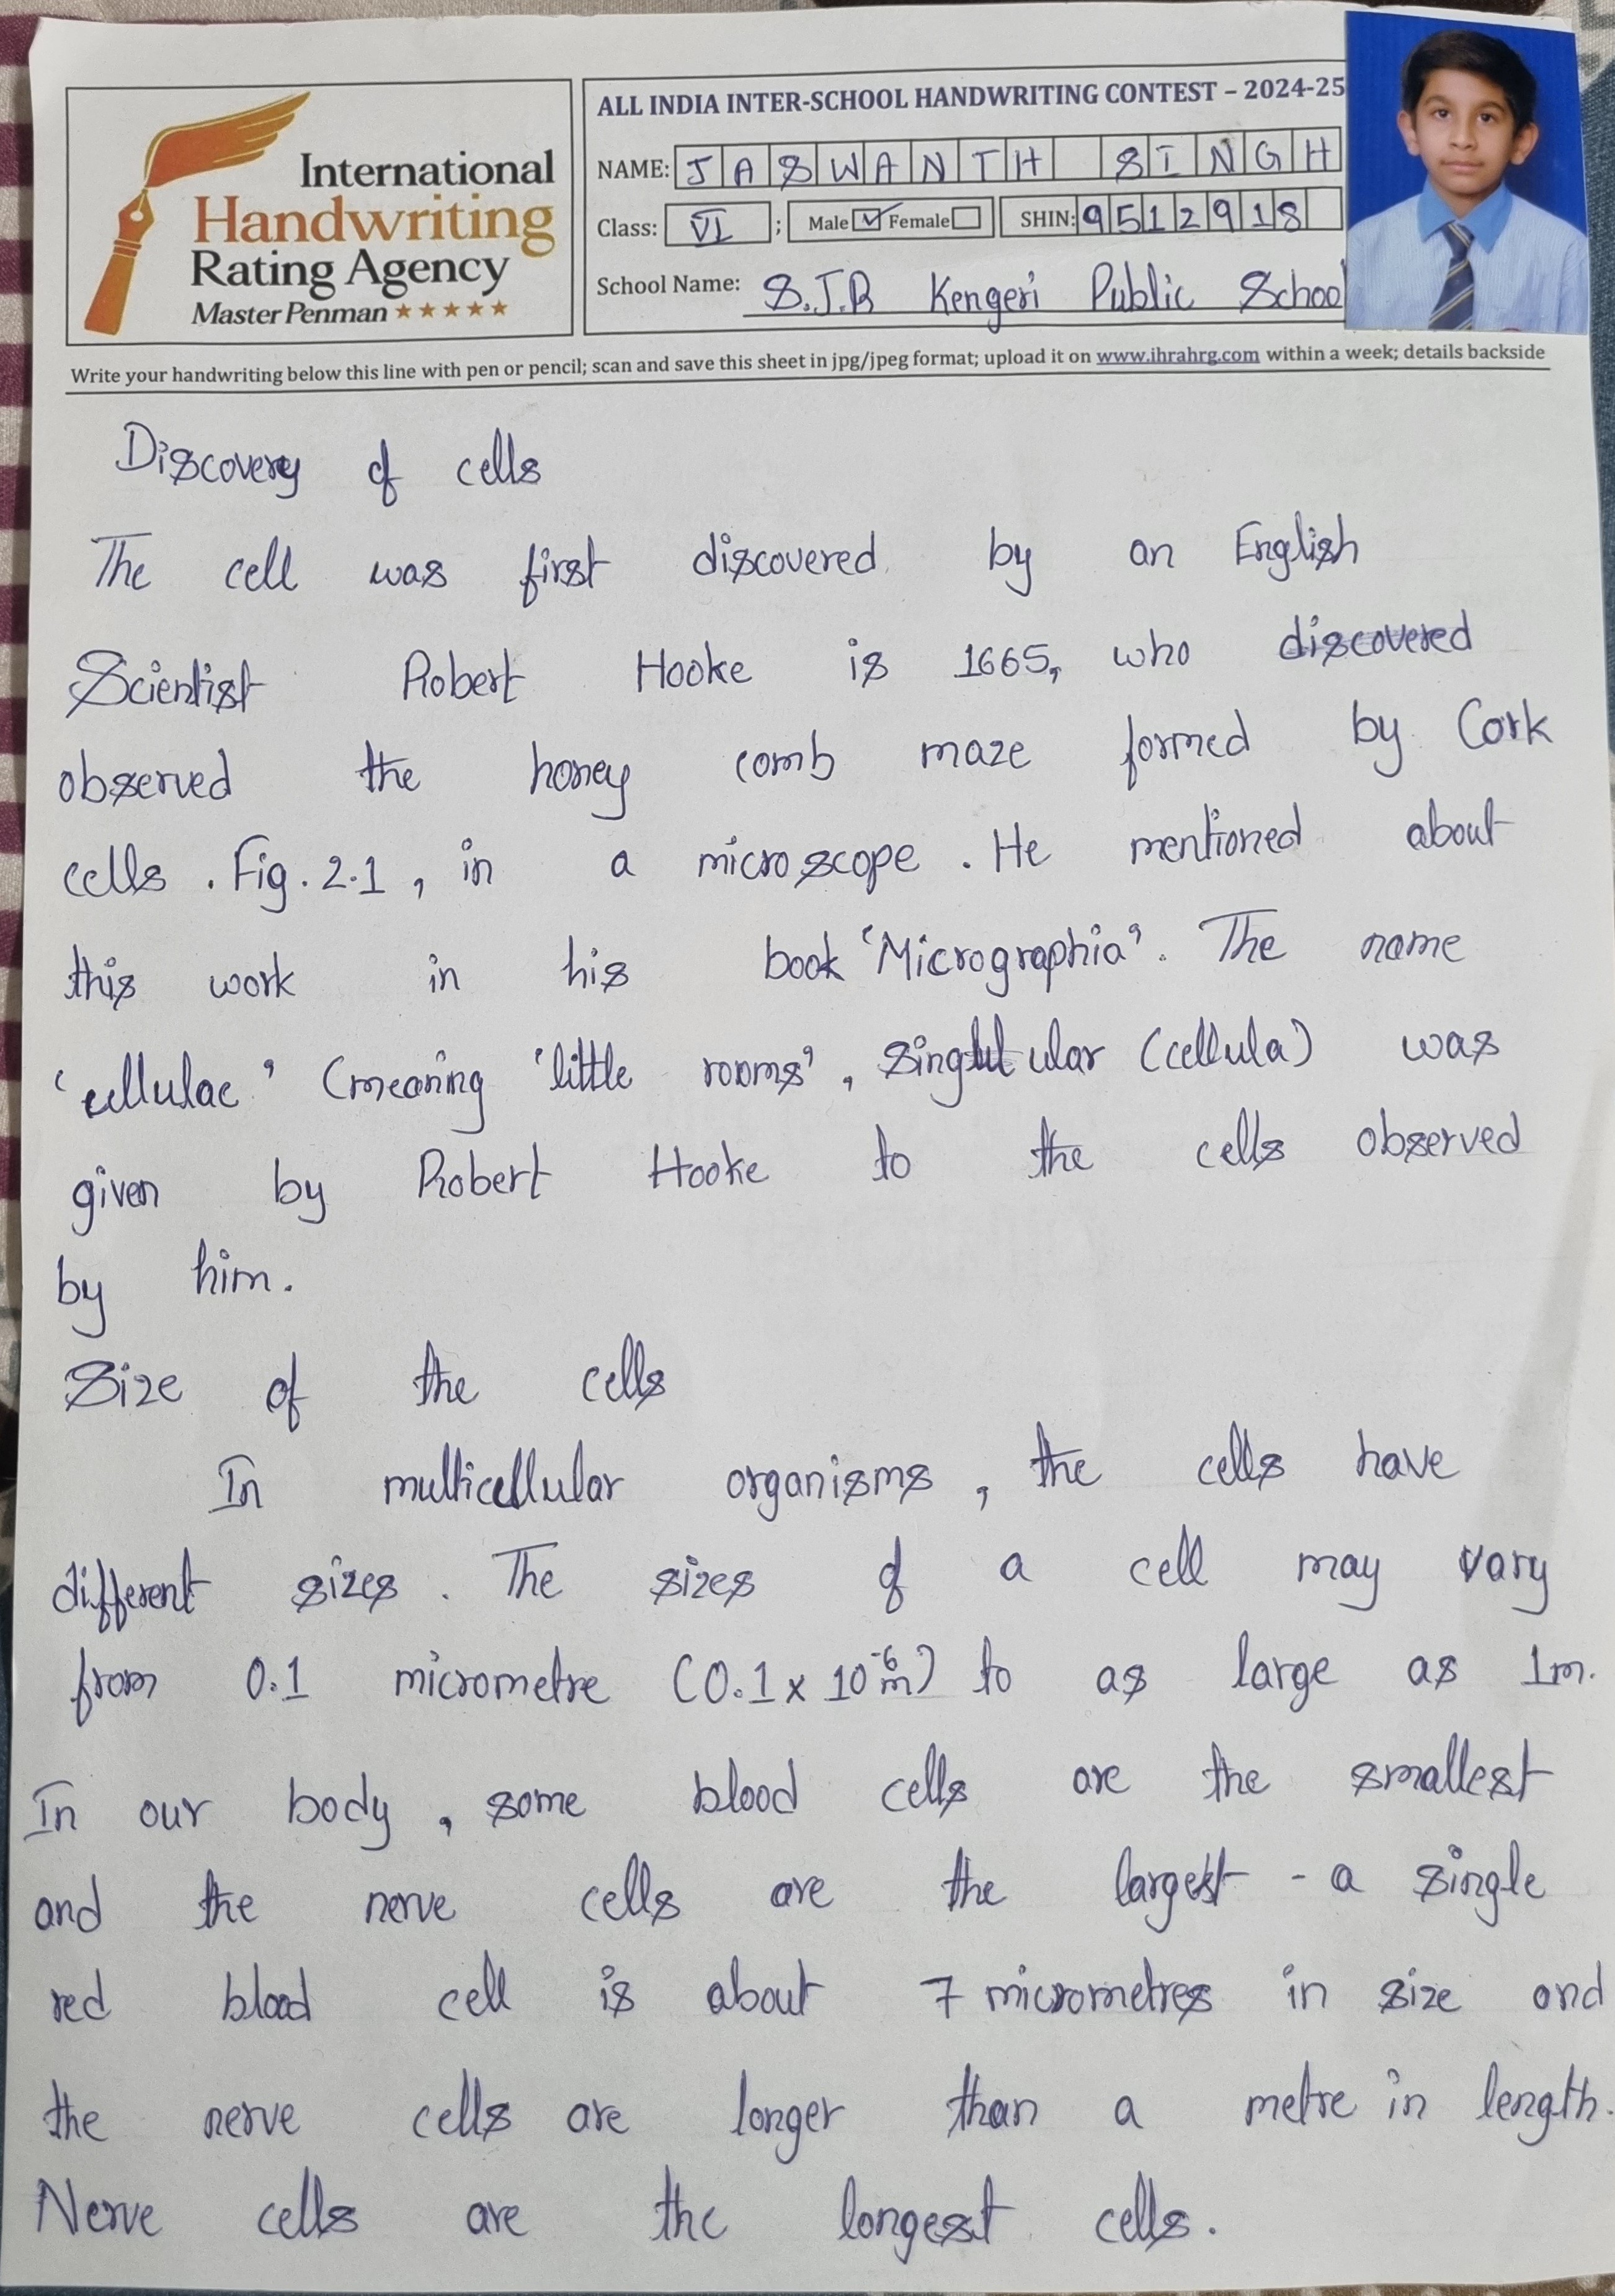 International
Handwriting
Rating Agency
Master Penman
ALL INDIA INTER-SCHOOL HANDWRITING CONTEST – 2024-25
NAME: JASWANTH SINGH
Class: VI ; Male Female SHIN: 9512918
School Name: S.J.R Kengeri Public School
Write your handwriting below this line with pen or pencil; scan and save this sheet in jpg/jpeg format; upload it on www.ihrahrg.com within a week; details backside
Discovery of cells
The cell was first discovered by an English
Scientist Robert Hooke is 1665, who discovered
observed the honey comb maze formed by Cork
cells . Fig . 2.1 , in a microscope . He mentioned about
this work in his book 'Micrographia'. The name
'cellulae' (meaning 'little rooms', singular (cellula) was
given by Robert Hooke to the cells observed
by him.
Size of the cells
In multicellular organisms , the cells have
different sizes . The sizes of a cell may vary
from 0.1 micrometre (0.1 x 10⁻⁶m) to as large as 1m.
In our body , some blood cells are the smallest
and the nerve cells are the largest - a single
red blood cell is about 7 micrometres in size and
the nerve cells are longer than a metre in length.
Nerve cells are the longest cells.